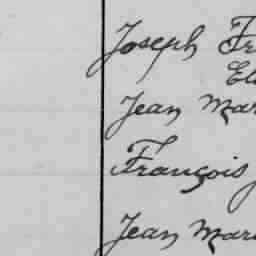 Joseph Fr
El
Jean Mar
François
Jean Mar